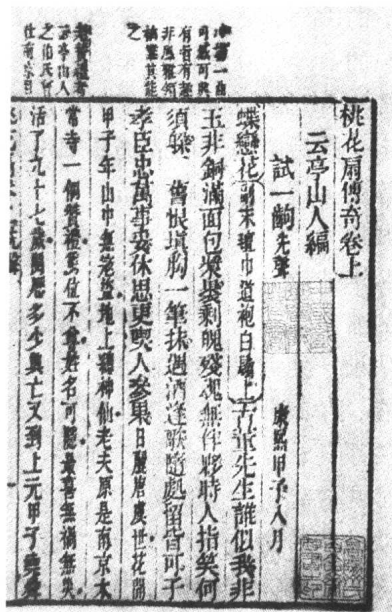 桃花扇傳奇卷上
云亭山人編
試一齣 先聲 康熙甲子八月
蝶戀花 副末氊巾道袍白鬚上 古董先生誰似我非
玉非銅滿面包漿裹剩魄殘魂無伴夥時人指笑何
須躱 舊恨填胸一筆抹遇酒逢歌隨處留皆可子
孝臣忠萬事妥休思更喫人參果日麗唐虞世花開
甲子年山中無寇盜地上總神仙老夫原是南京太
常寺一個贊禮爵位不尊姓名可隱最喜無禍無災
活了九十七歲閱歷多少興亡又到上元甲子堯舜
冲場一曲
可感可興
有旨有趣
非風雅領
袖莫能
之
老贊禮者
云亭山人
之伯氏曾
仕南京目